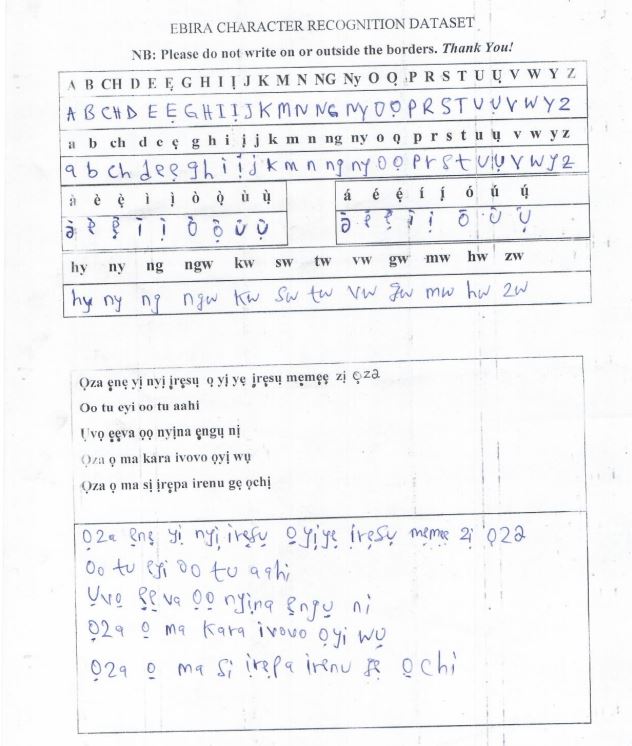 EBIRA CHARACTER RECOGNITION DATASET
NB: Please do not write on or outside the borders. Thank You!
A B CH D E Ẹ G H I Ị J K M N NG Ny O Ọ P R S T U Ụ V W Y Z
A B CH D E Ẹ G H I Ị J K M N NG Ny O Ọ P R S T U Ụ V W Y Z
a b ch d e ẹ g h i ị j k m n ng ny o ọ p r s t u ụ v w y z
a b ch d e ẹ g h i ị j k m n ng ny o ọ p r s t u ụ v w y z
à è ẹ̀ ì ị̀ ò ọ̀ ù ụ̀ á é ẹ́ í ị́ ó ú ụ́
à è ẹ̀ ì ị̀ ò ọ̀ ù ụ̀ à è ẹ̀ ì ị̀ ò ù ụ̀
hy ny ng ngw kw sw tw vw gw mw hw zw
hy ny ng ngw kw sw tw vw gw mw hw zw
Ọza ẹnẹ yị nyị ịrẹsụ ọ yị yẹ ịrẹsụ mẹmẹẹ zị ọza
Oo tu eyi oo tu aahi
Ụvọ ẹẹva ọọ nyịna ẹngụ nị
Ọza ọ ma kara ivovo ọyị wụ
Ọza ọ ma sị ịrẹpa irenu gẹ ọchị
Ọza ẹnẹ yị nyị ịrẹsụ ọ yị yẹ ịrẹsụ mẹmẹe zị ọza
Oo tu eyi oo tu aahi
Ụvọ ẹẹ va ọọ nyịna ẹngụ ni
Ọza ọ ma kara ivovo ọyi wụ
Ọza ọ ma sị ịrẹpa irenu gẹ ọchi